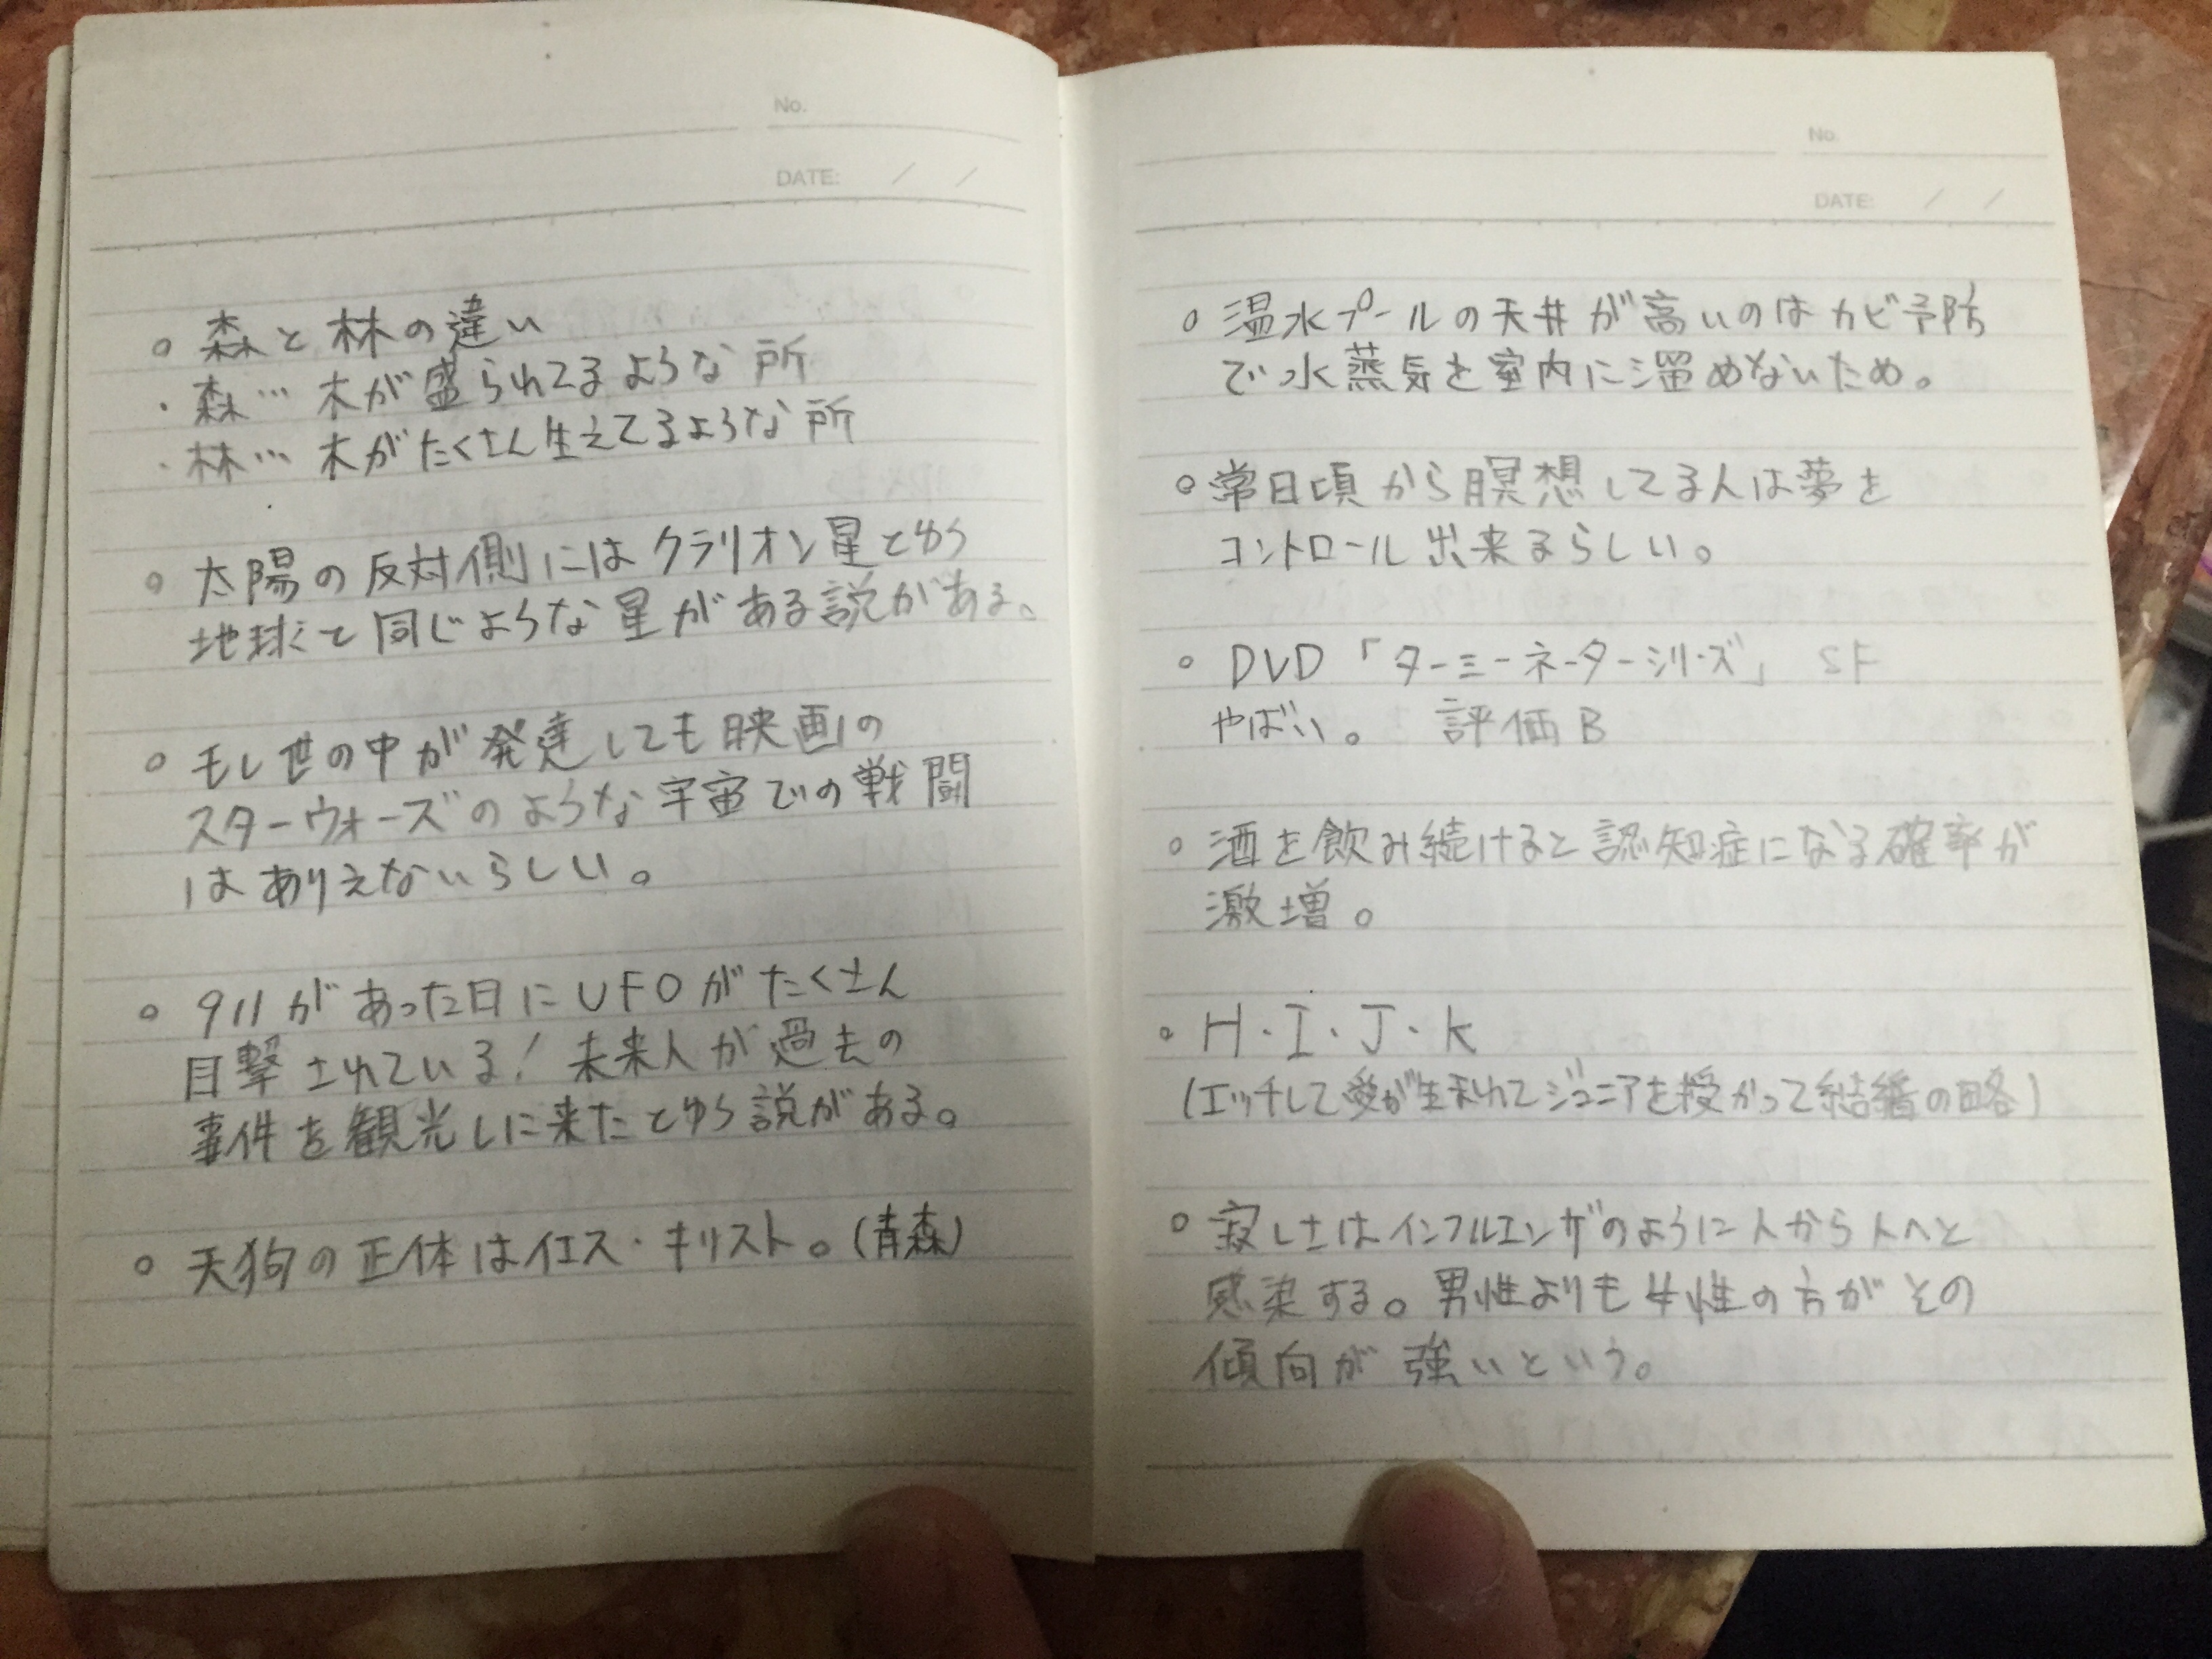 No.
DATE: / /
○ 森と林の違い
・森… 木が盛られてるような所
・林… 木がたくさん生えてるような所
○ 太陽の反対側にはクラリオン星とゆう
地球と同じような星がある説がある。
○ もし世の中が発達しても映画の
スターウォーズのような宇宙での戦闘
はありえないらしい。
○ 911があった日にUFOがたくさん
目撃されている! 未来人が過去の
事件を観光しに来たとゆう説がある。
○ 天狗の正体はイエス・キリスト。(青森)
No.
DATE: / /
○ 温水プールの天井が高いのはカビ予防
で水蒸気を室内に溜めないため。
○ 常日頃から瞑想してる人は夢を
コントロール出来るらしい。
○ DVD「ターミーネーターシリーズ」 SF
やばい。 評価B
○ 酒を飲み続けると認知症になる確率が
激増。
○ H・I・J・K
(エッチして愛が生まれてジュニアを授かって結婚の略)
○ 寂しさはインフルエンザのように人から人へと
感染する。男性よりも女性の方がその
傾向が強いという。